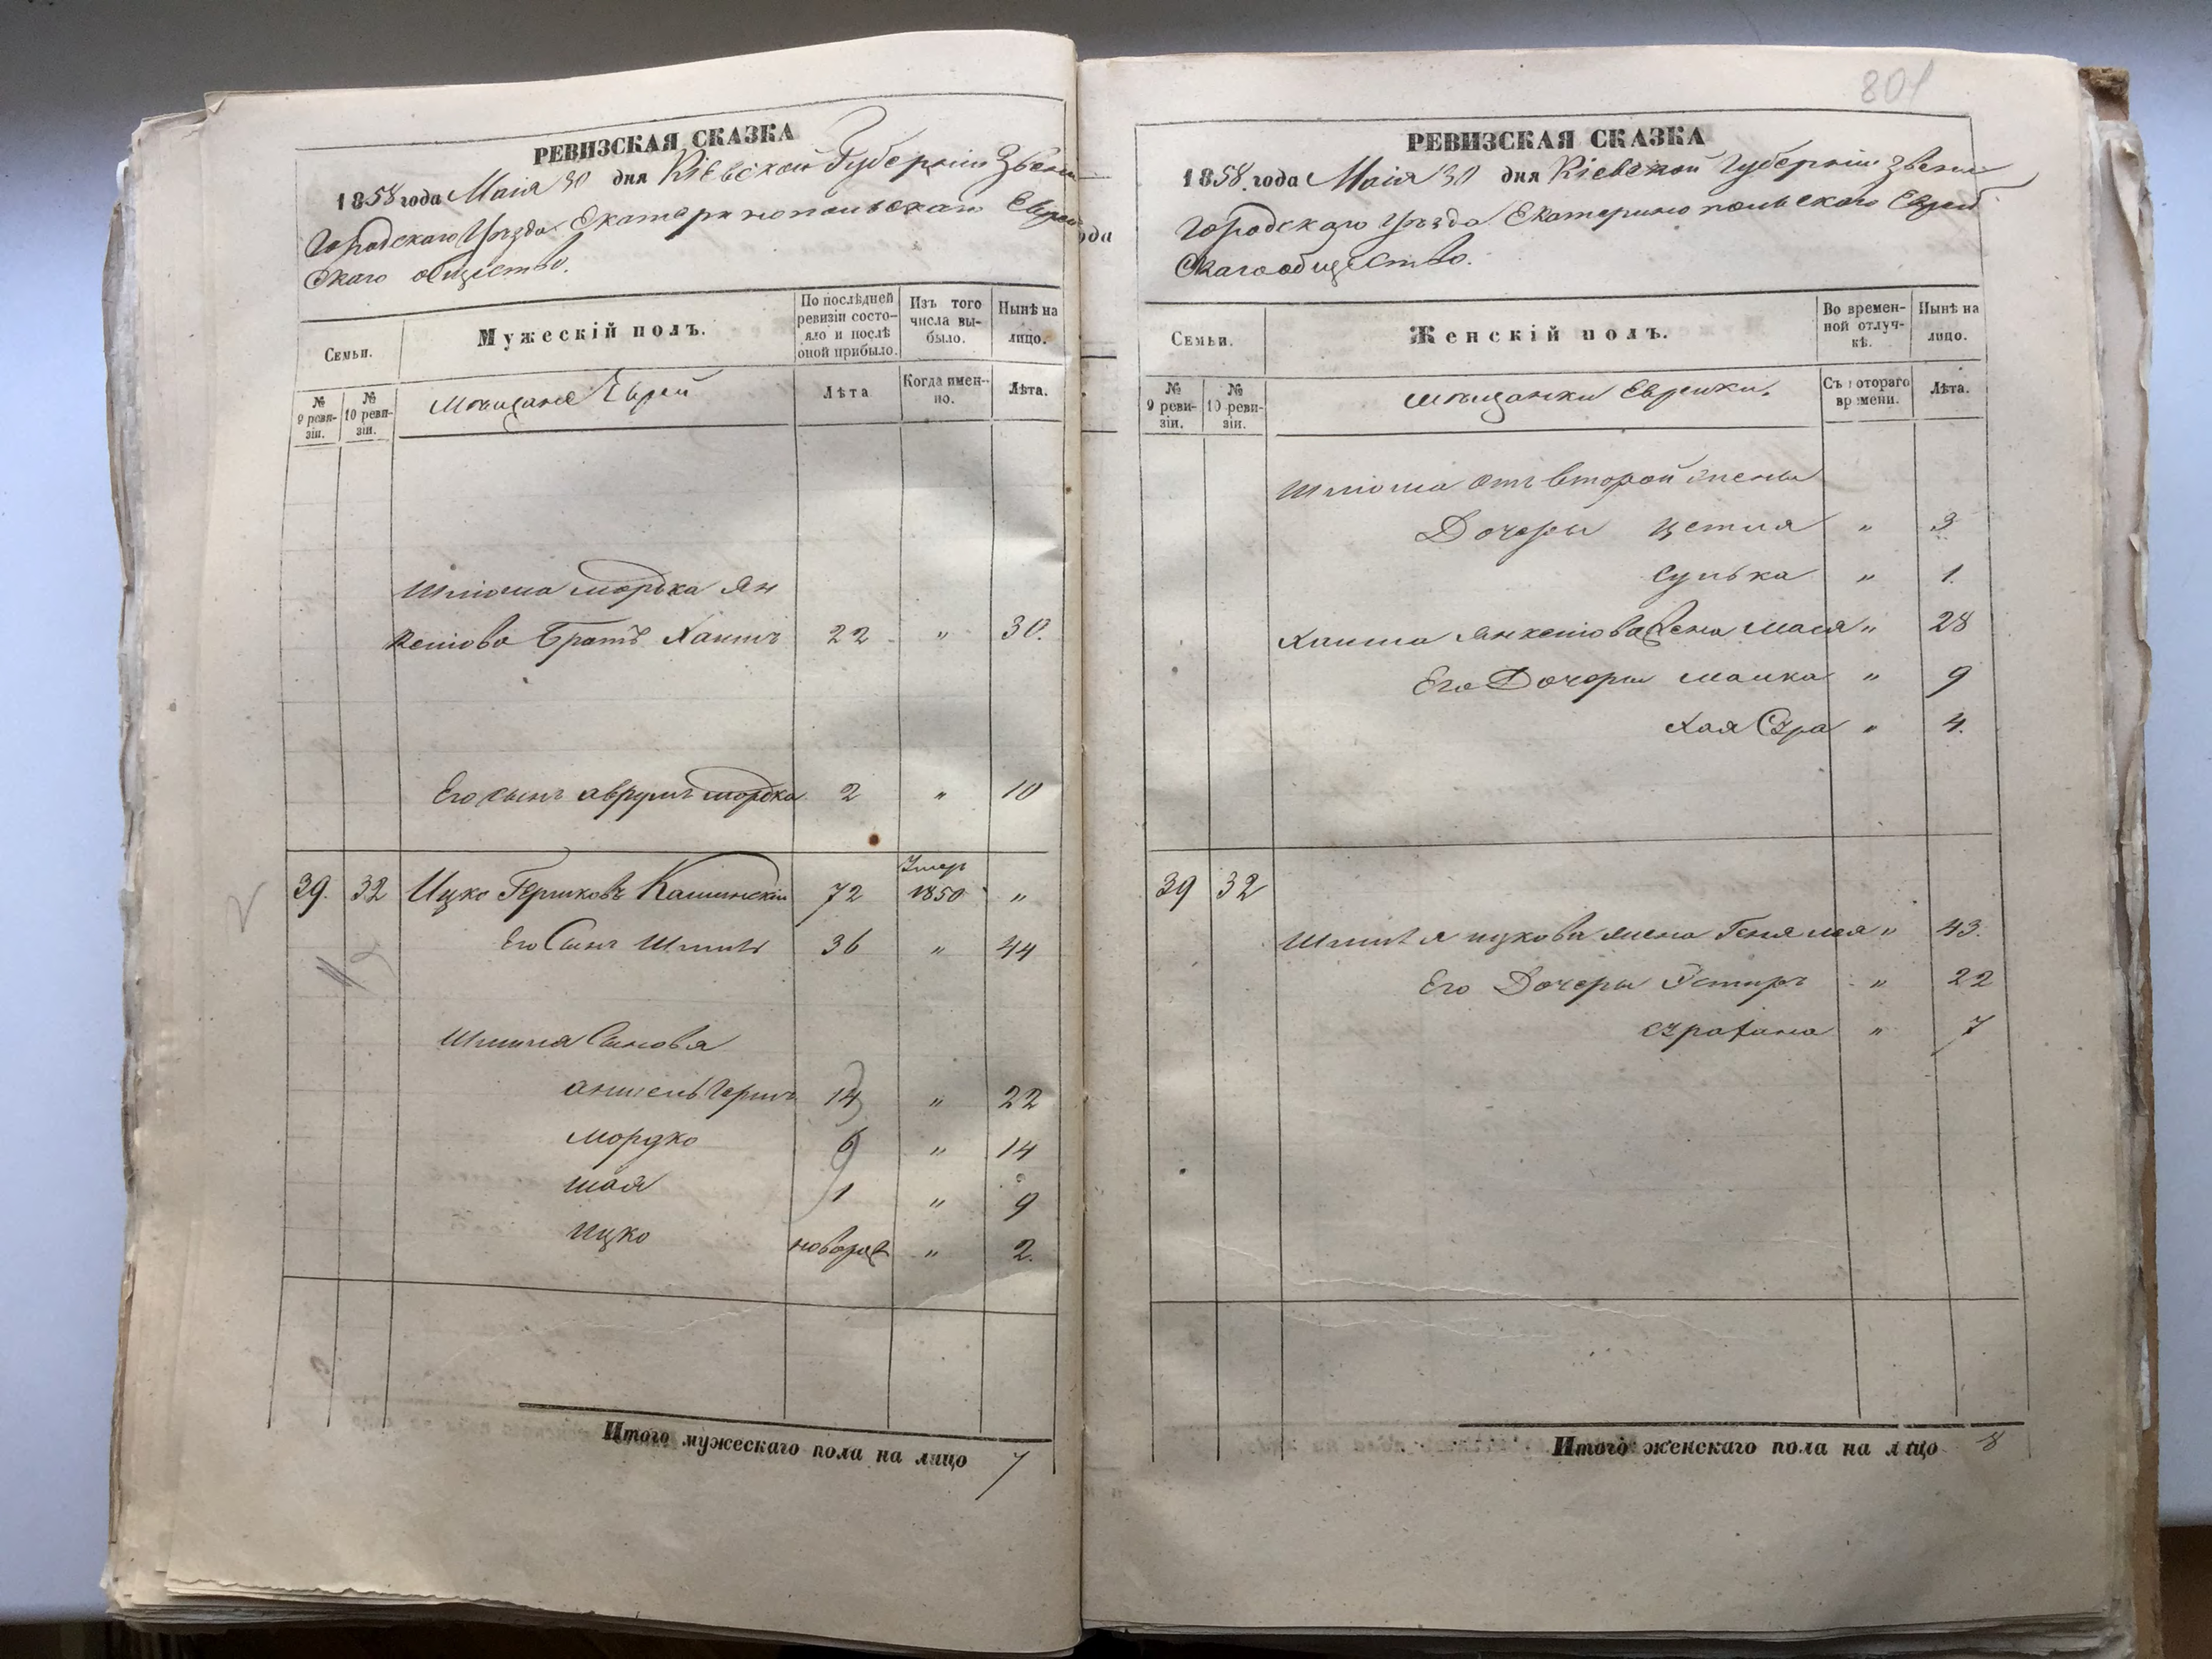 РЕВИЗСКАЯ СКАЗКА
1858 года Маія 30 дня Кіевской Губерніи Звени
городскаго Уѣзда Екатеринопольскаго Еврей
скаго общества.
Семьи.
Мужескій полъ.
По послѣдней ревизіи состояло и послѣ оной прибыло.
Изъ того числа выбыло.
Нынѣ на лицо.
№ 9 ревизіи.
№ 10 ревизіи.
Мѣщане Евреи
Лѣта
Когда именно.
Лѣта.
Шліома Мордка Ян
келіова Братъ Хаимъ 22 " 30.
Его сынъ Аврумъ Мордка 2 " 10
39. 32 Ицко Гершковъ Кашинскій 72 Умеръ 1850 "
Его Сынъ Шмиль 36 " 44
Шмиля Сыновя
Аншель Гершъ 14 " 22
Мордко 6 " 14
Шая 1 " 9
Ицко новорож " 2.
Итого мужескаго пола на лицо 7
801
РЕВИЗСКАЯ СКАЗКА
1858. года Маія 30 дня Кіевской Губерніи Звени
городскаго Уѣзда Екатеринопольскаго Еврей
скаго общества.
Семьи.
Женскій полъ.
Во временной отлучкѣ.
Нынѣ на лицо.
№ 9 ревизіи.
№ 10 ревизіи.
мѣщанки Еврейки.
Съ котораго времени.
Лѣта.
Шліома отъ второй жены
Дочери Цетля " 3
Сулька " 1.
Хаима Янкеліова жена Мася " 28
Его Дочери Малка " 9
Хая Сура " 4.
39 32
Шмиля Ицкова жена Геня Лея " 43.
Его Дочери Эстиръ " 22
Сура Хана " 7
Итого женскаго пола на лицо 8